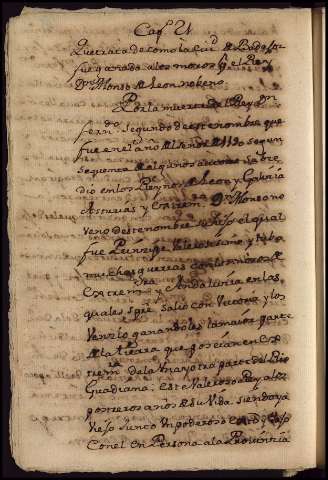 Cap. 21
Que trata de como la Ciud. de Badajoz
fue ganada a los moros por el Rey
Dn. Alonso de Leon noveno
Por la muerte del Rey Dn
fern.do Segundo de este nombre que
fue en el año del Señor de 1190 segun
se quenta de algunos
dio en los Reynos de Leon y Galicia
Asturias y Extrem.ra Dn Alonso no
veno de este nombre su hijo el qual
fue Principe Valerosisimo y tubo
muchas guerras con los moros de
Extrem.ra y Andalucia en las
quales spre. salio con Victoria y los
Vencio ganandoles la maior parte
de la tierra que poseian en Ex
trem.ra de la mayor parte del Rio
Guadiana: este Valeroso Rey a los
postreros años de su Vida siendo ya
Viejo junto un poderoso
con el en Persona a la Provincia